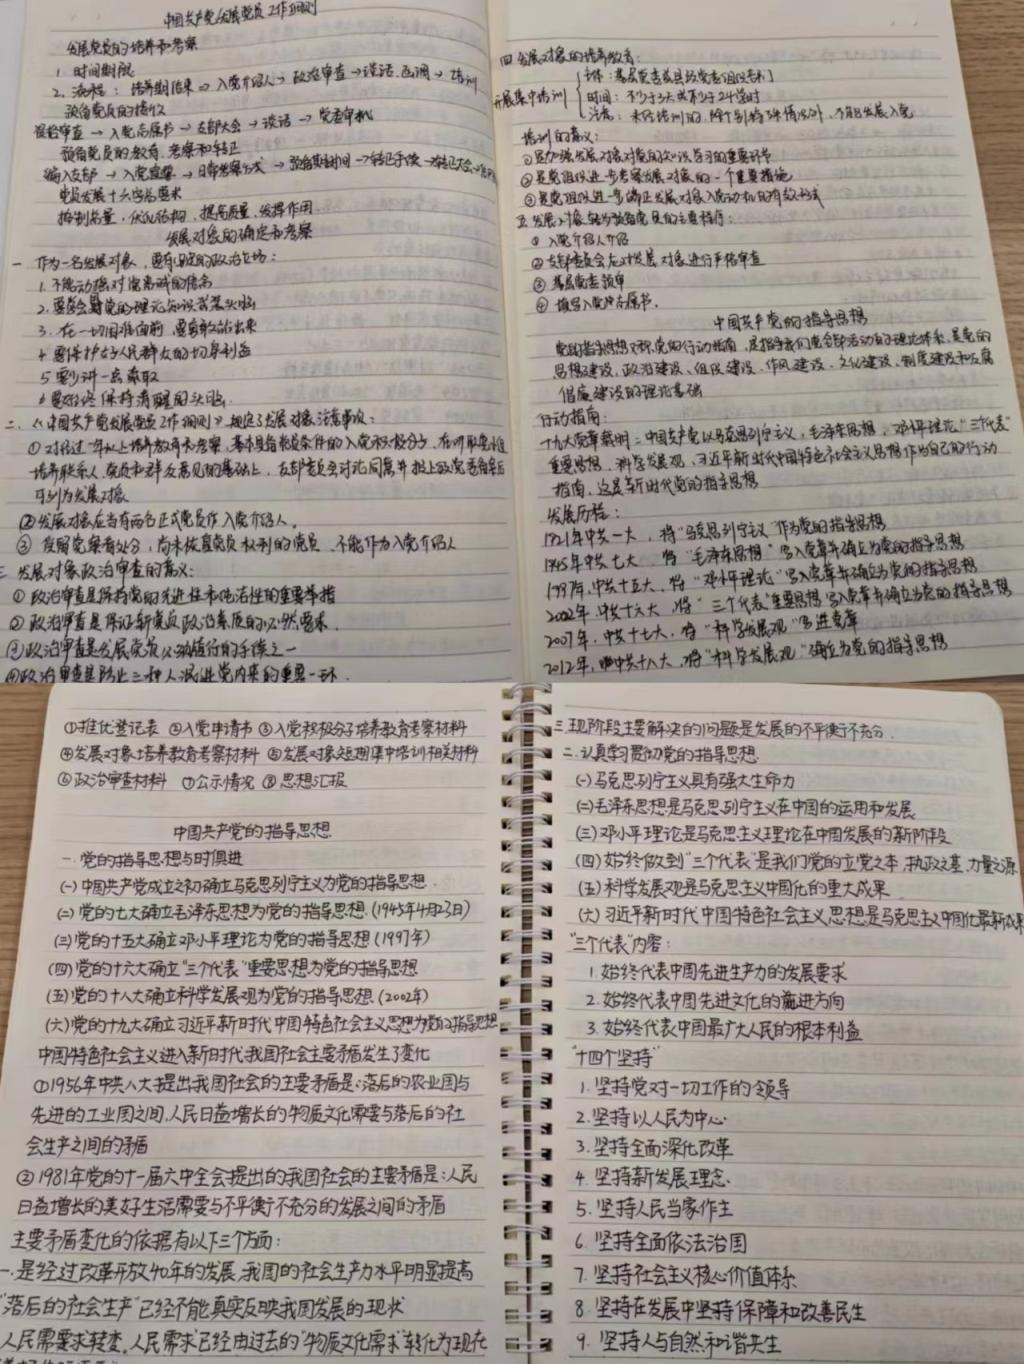 中国共产党发展党员工作细则
发展党员的培养和考察
1. 时间期限
2. 流程：培养期结束⇒入党介绍人→政治审查→谈话、函调→培训
预备党员的接收
→入党志愿书→支部大会→谈话→党委审批
预备党员的教育、考察和转正
编入支部→入党宣誓→日常考察方式→预备期时间→转正手续→转正大会→
党员发展十六字总要求
控制总量、优化结构、提高质量、发挥作用
发展对象的确定和考察
一 作为一名发展对象，要有坚定的政治立场：
1. 不能动摇对党忠诚的信念
2. 要学会用党的理论知识武装头脑
3. 在一切困难面前，要勇敢站出来
4 要保护好人民群众的切身利益
5 要少讲一点索取
6 要始终保持清醒的头脑
二、《中国共产党发展党员工作细则》规定了发展对象注意事项：
①对经过一年以上培养教育和考察、基本具备党员条件的入党积极分子，在听取党小组
培养联系人、党员和群众意见的基础上，支部委员会讨论同意并报上级党委备案后
可列为发展对象
②发展对象应当有两名正式党员作入党介绍人。
③ 受留党察看处分，尚未恢复党员权利的党员，不能作为入党介绍人
三 发展对象政治审查的意义：
① 政治审查是保持党的先进性和纯洁性的重要举措
② 政治审查是保证新党员政治素质的必然要求
③政治审查是发展党员必须履行的手续之一
④政治审查是防止三种人混进党内来的重要一环.
四 发展对象的培养教育：
主体：基层党委或县级党委组织部门
开展集中培训 时间：不少于3天或不少于24学时
注意：未经培训的，除个别特殊情况外，不能发展入党
培训的意义：
①是加强发展对象对党的知识学习的重要环节
②是党组织进一步考察发展对象的一个重要措施
③是党组织进一步端正发展对象入党动机的有效形式
五 发展对象转为预备党员的主要程序：
① 入党介绍人介绍
② 支部委员会应对发展对象进行严格审查
③ 基层党委预审
④ 填写入党志愿书。
中国共产党的指导思想
党的指导思想又称党的行动指南，是指导我们党全部活动的理论体系，是党的
思想建设、政治建设、组织建设、作风建设、文化建设、制度建设和反腐
倡廉建设的理论基础
行动指南：
十九大党章载明：中国共产党以马克思列宁主义、毛泽东思想、邓小平理论“三个代表”
重要思想、科学发展观、习近平新时代中国特色社会主义思想作为自己的行动
指南，这是新时代党的指导思想
发展历程：
1921年中共一大，将“马克思列宁主义”作为党的指导思想
1945年中共七大，将“毛泽东思想”写入党章并确立为党的指导思想
1997年，中共十五大，将“邓小平理论”写入党章并确立为党的指导思想
2002年，中共十六大，将“三个代表”重要思想写入党章并确立为党的指导思想
2007年，中共十七大，将“科学发展观”写进党章
2012年，中共十八大，将“科学发展观”确立为党的指导思想
①推优登记表 ②入党申请书 ③入党积极分子培养教育考察材料
④发展对象培养教育考察材料 ⑤发展对象短期集中培训相关材料
⑥政治审查材料 ⑦公示情况 ⑧思想汇报
中国共产党的指导思想
一.党的指导思想与时俱进
(一)中国共产党成立之初确立马克思列宁主义为党的指导思想.
(二)党的七大确立毛泽东思想为党的指导思想.(1945年4月23日)
(三)党的十五大确立邓小平理论为党的指导思想(1997年)
(四)党的十六大确立“三个代表”重要思想为党的指导思想
(五)党的十八大确立科学发展观为党的指导思想.(2002年)
(六)党的十九大确立习近平新时代中国特色社会主义思想为党的指导思想
中国特色社会主义进入新时代,我国社会主要矛盾发生了变化
①1956年中共八大提出我国社会的主要矛盾是:落后的农业国与
先进的工业国之间,人民日益增长的物质文化需要与落后的社
会生产之间的矛盾
②1981年党的十一届六中全会提出的我国社会的主要矛盾是:人民
日益增长的美好生活需要与不平衡不充分的发展之间的矛盾
主要矛盾变化的依据有以下三个方面:
一.是经过改革开放40年的发展,我国的社会生产力水平明显提高
“落后的社会生产”已经不能真实反映我国发展的现状
人民需要求转变,人民需求已经由过去的“物质文化需求”转化为现在
三.现阶段主要解决的问题是发展的不平衡不充分.
二.认真学习贯彻党的指导思想
(一)马克思列宁主义具有强大生命力
(二)毛泽东思想是马克思列宁主义在中国的运用和发展
(三)邓小平理论是马克思主义理论在中国发展的新阶段
(四)始终做到“三个代表”是我们党的立党之本,执政之基,力量之源
(五)科学发展观是马克思主义中国化的重大成果
(六)习近平新时代中国特色社会主义思想是马克思主义中国化最新成果
“三个代表”内容:
1.始终代表中国先进生产力的发展要求
2.始终代表中国先进文化的前进方向
3.始终代表中国最广大人民的根本利益
“十四个坚持”
1.坚持党对一切工作的领导
2.坚持以人民为中心
3.坚持全面深化改革
4.坚持新发展理念.
5.坚持人民当家作主
6.坚持全面依法治国
7.坚持社会主义核心价值体系
8.坚持在发展中坚持保障和改善民生
9.坚持人与自然和谐共生